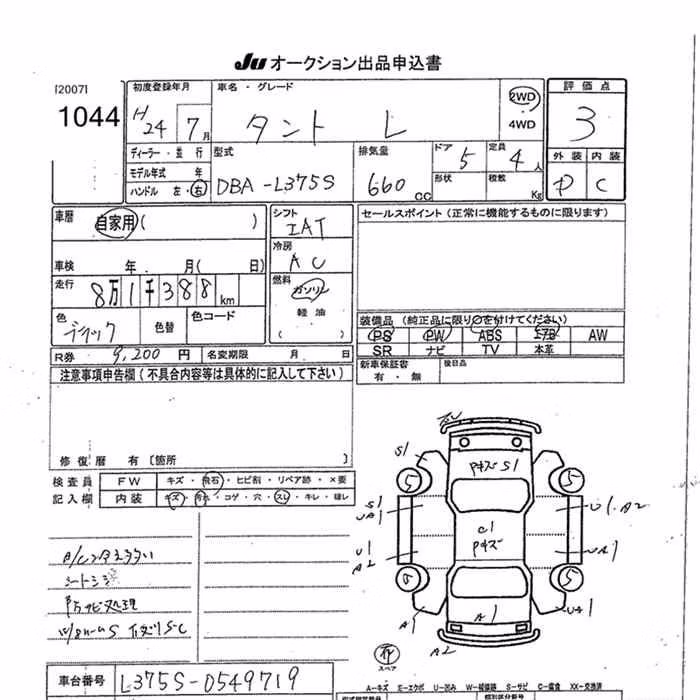 JU オークション出品申込書
[2007]
1044
初度登録年月
H24 7月
車名・グレード
タント L
2WD
4WD
評価点
3
外装 内装
C
ディーラー・並行
モデル年式 年
ハンドル 左・右
型式
DBA-L375S
排気量
660 CC
ドア
5
定員
4人
形状
積数
Kg
車暦
自家用( )
車検 年 月( 日)
走行
8万1千388km
色
ブラック
色替
色コード
シフト
IAT
冷房
AC
燃料
ガソリン
軽油
( )
セールスポイント(正常に機能するものに限ります)
装備品(純正品に限り○を付けてください)
PS PW ABS エアB AW
SR ナビ TV 本革
新車保証書
有・無
後日品
R券 9,200円 名変期限 月 日
注意事項申告欄(不具合内容等は具体的に記入して下さい)
修復暦 有〔箇所 〕
検査員
記入欄
FW キズ・飛石・ヒビ割・リペア跡・×要
内装 キズ・汚れ・コゲ・穴・スレ・キレ・ほし
防サビ処理
S1
5 5
アキズ S1
S1
UA1
U1 A2
C1
アキズ
U1
A2
UA1
5
A1 A1 UA1
A2
スペア
車台番号 L375S-0549719
A-キズ E-エクボ U-凹み W-補修跡 S-サビ C-腐食 XX-交換済